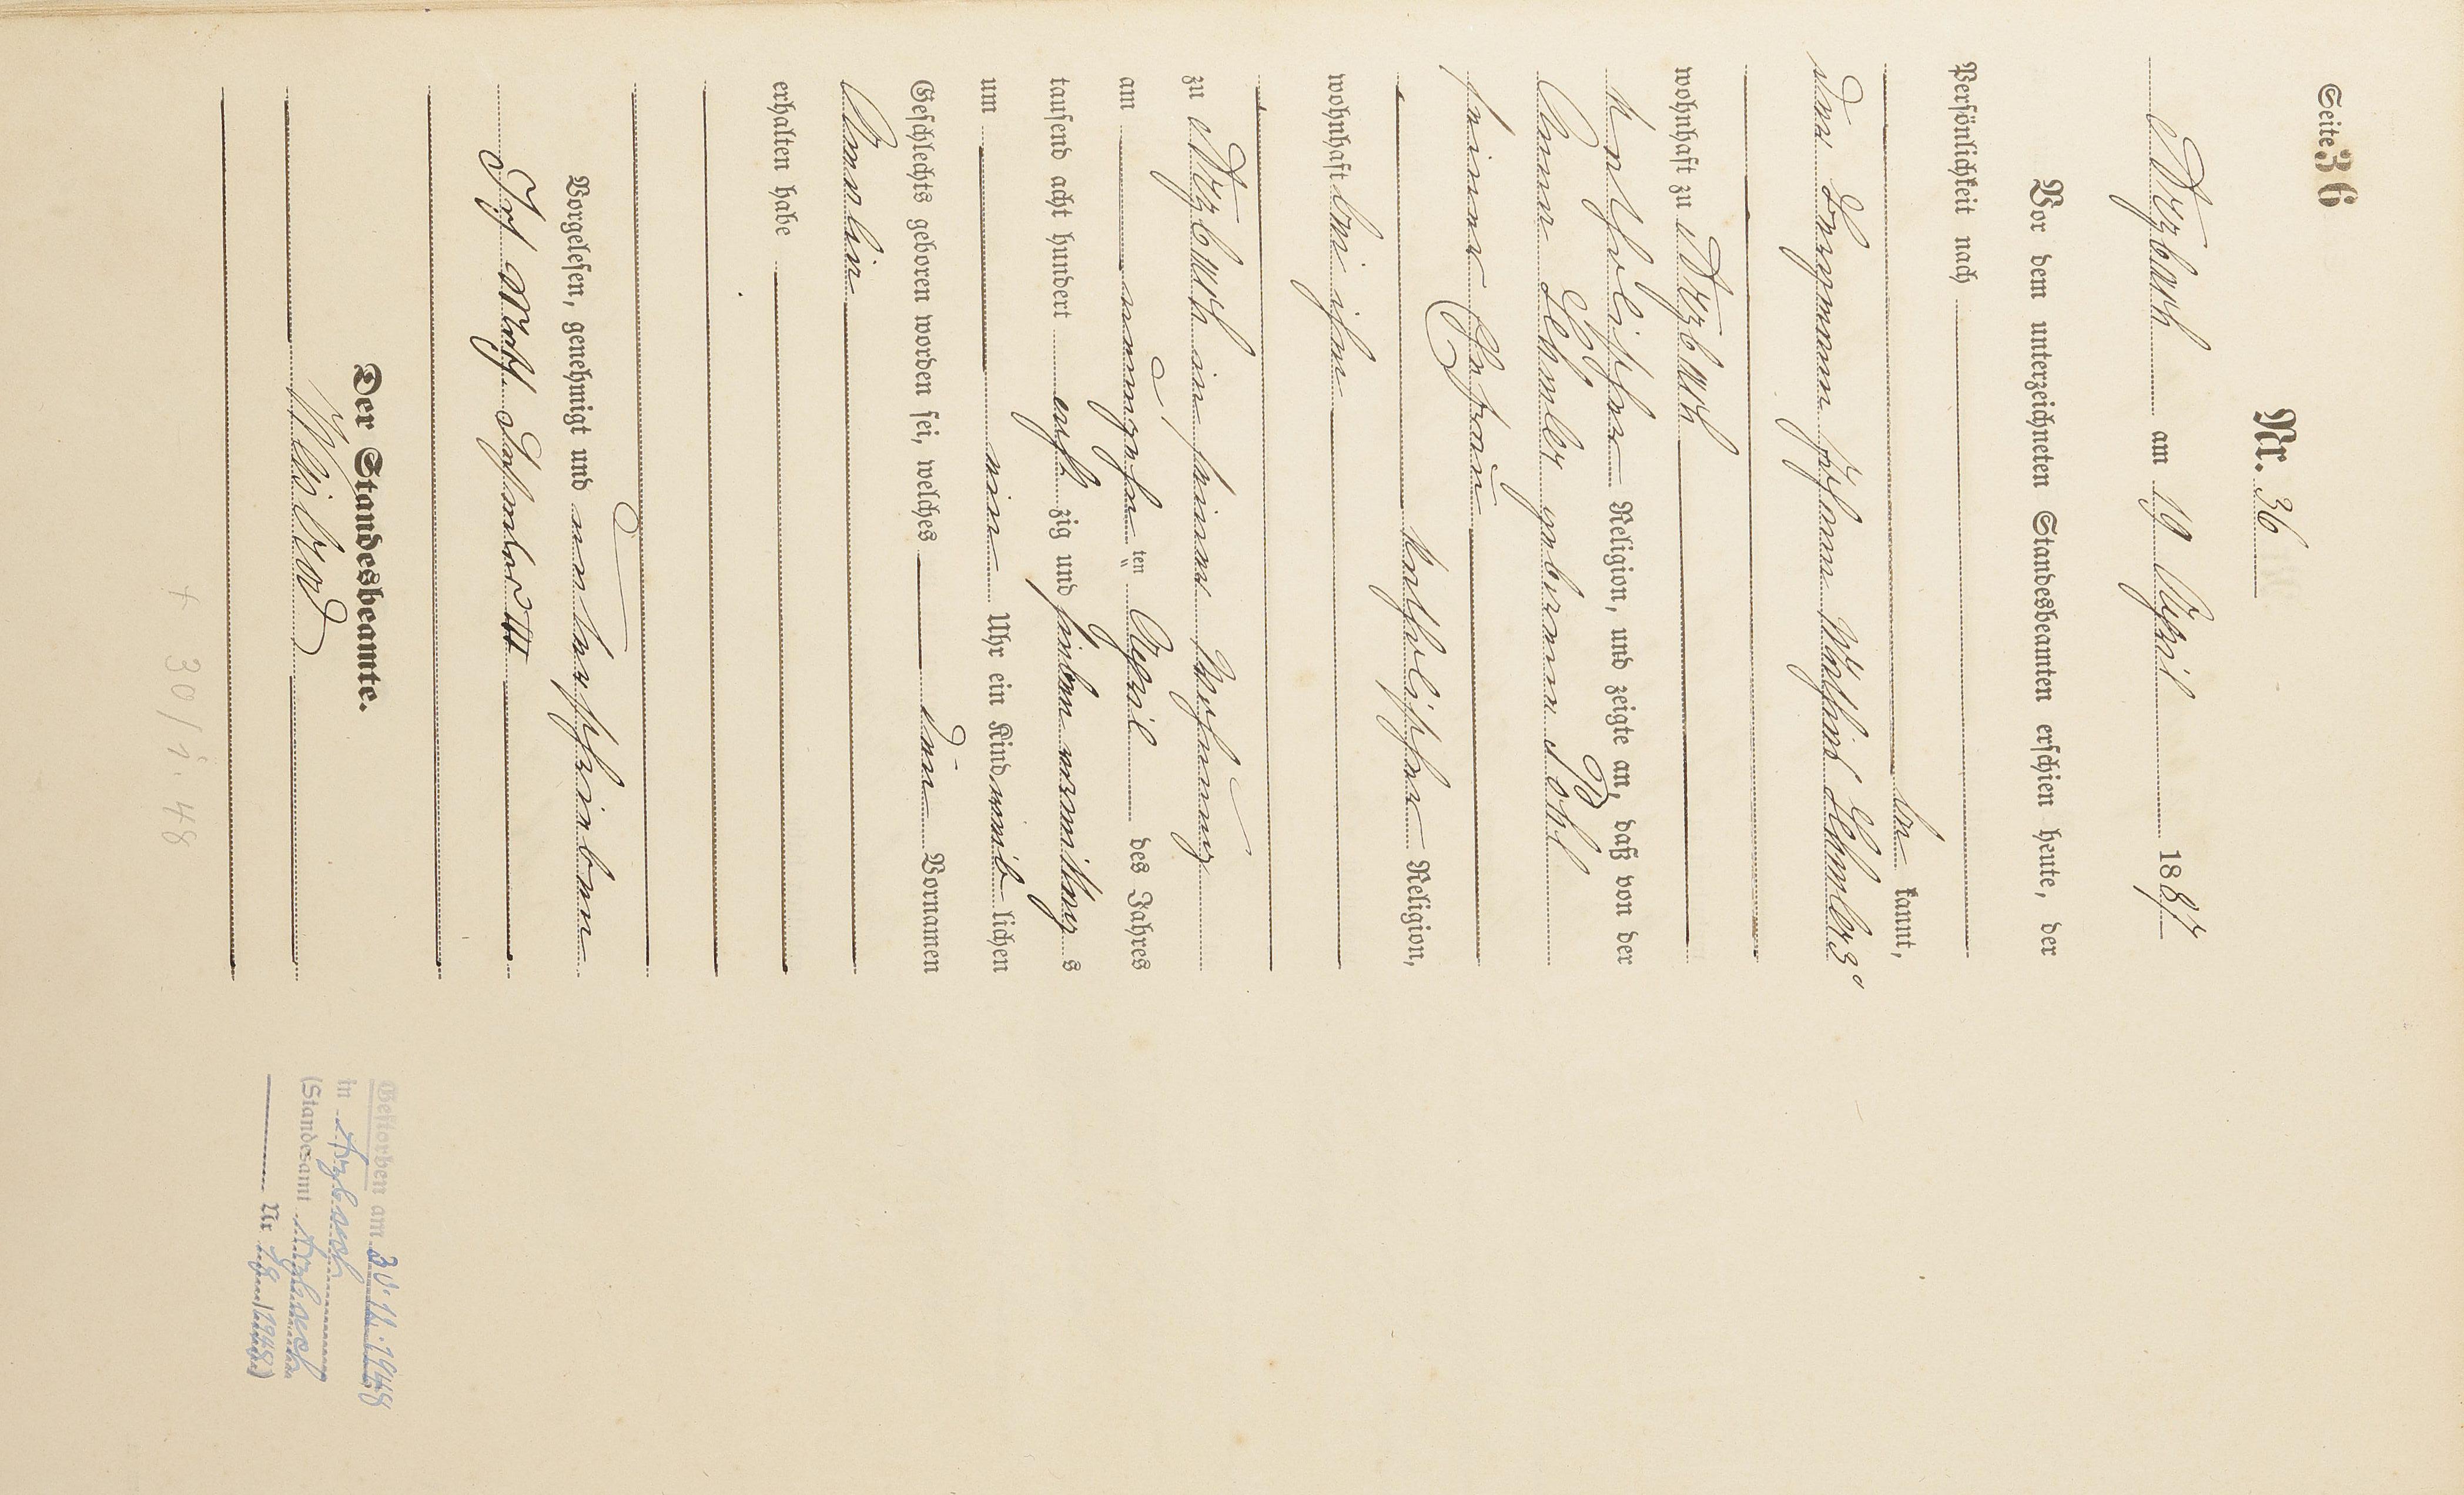 Seite 36
Nr. 36
Arzbach am 19 April 1887
Vor dem unterzeichneten Standesbeamten erschien heute, der
Persönlichkeit nach
be kannt,
der Bergmann Johann
wohnhaft zu Arzbach
katholischer Religion, und zeigte an, daß von der
Anna geborenen Pohl
seiner Ehefrau
katholischer Religion,
wohnhaft bei ihm
zu Arzbach in seiner Wohnung
am neunzehn ten April des Jahres
tausend acht hundert acht zig und sieben vormittag s
um ein Uhr ein Kind weib lichen
Geschlechts geboren worden sei, welches den Vornamen
Amalie
erhalten habe
Vorgelesen, genehmigt und unterschrieben
Der Standesbeamte.
+ 30/ 48
Gestorben am 30.11.1948
in Arzbach
(Standesamt Arzbach
Nr. 18 /1948)